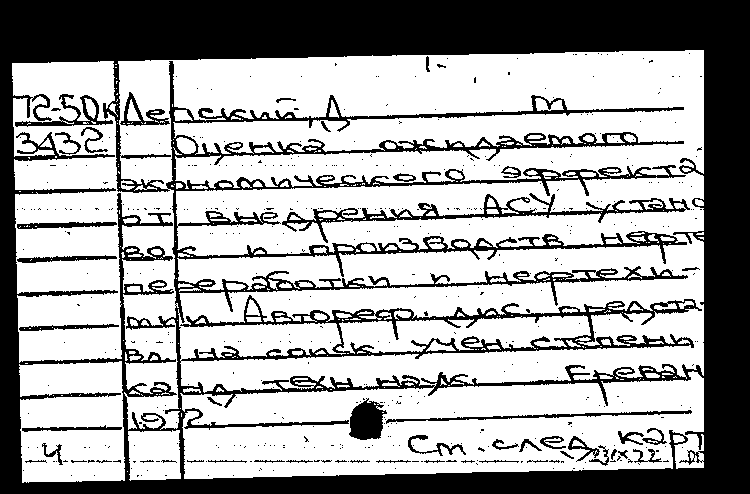 72-50к Лепский, Д m
3432 Оценка ожидаемого
экономического эффекта
от внедрения АСУ устано
вок и производств нефте
переработки и нефтехи-
мии Автореф. дис., предста-
вл. на соиск. учен. степени
канд. техн наук. Ереван
1972.
4 Cm. след. карт